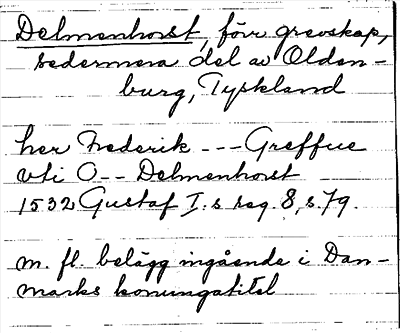 Delmenhorst, förr grevskap,
sedermera del av Olden-
burg, Tyskland
her Frederik --- Greffue
vti O-- Delmenhorst
1532 Gustaf I:s reg. 8, s. 79.
m. fl. belägg ingående i Dan-
marks konungatitel